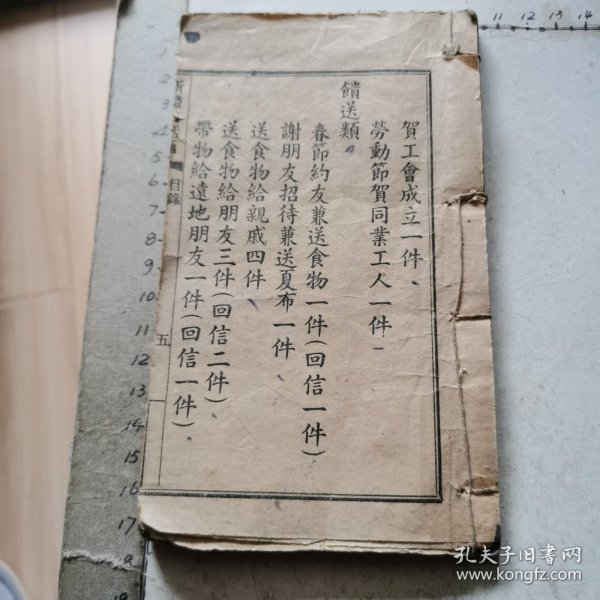 賀工會成立一件
勞動節賀同業工人一件
饋送類
春節約友兼送食物一件(回信一件)
謝朋友招待兼送夏布一件
送食物給親戚四件
送食物給朋友三件(回信二件)
帶物給遠地朋友一件(回信一件)
目錄
五
11 12 13 14
2
3
4
5
6
7
8
9
10
11
12
13
14
15
16
17
孔夫子旧书网
www.kongfz.com